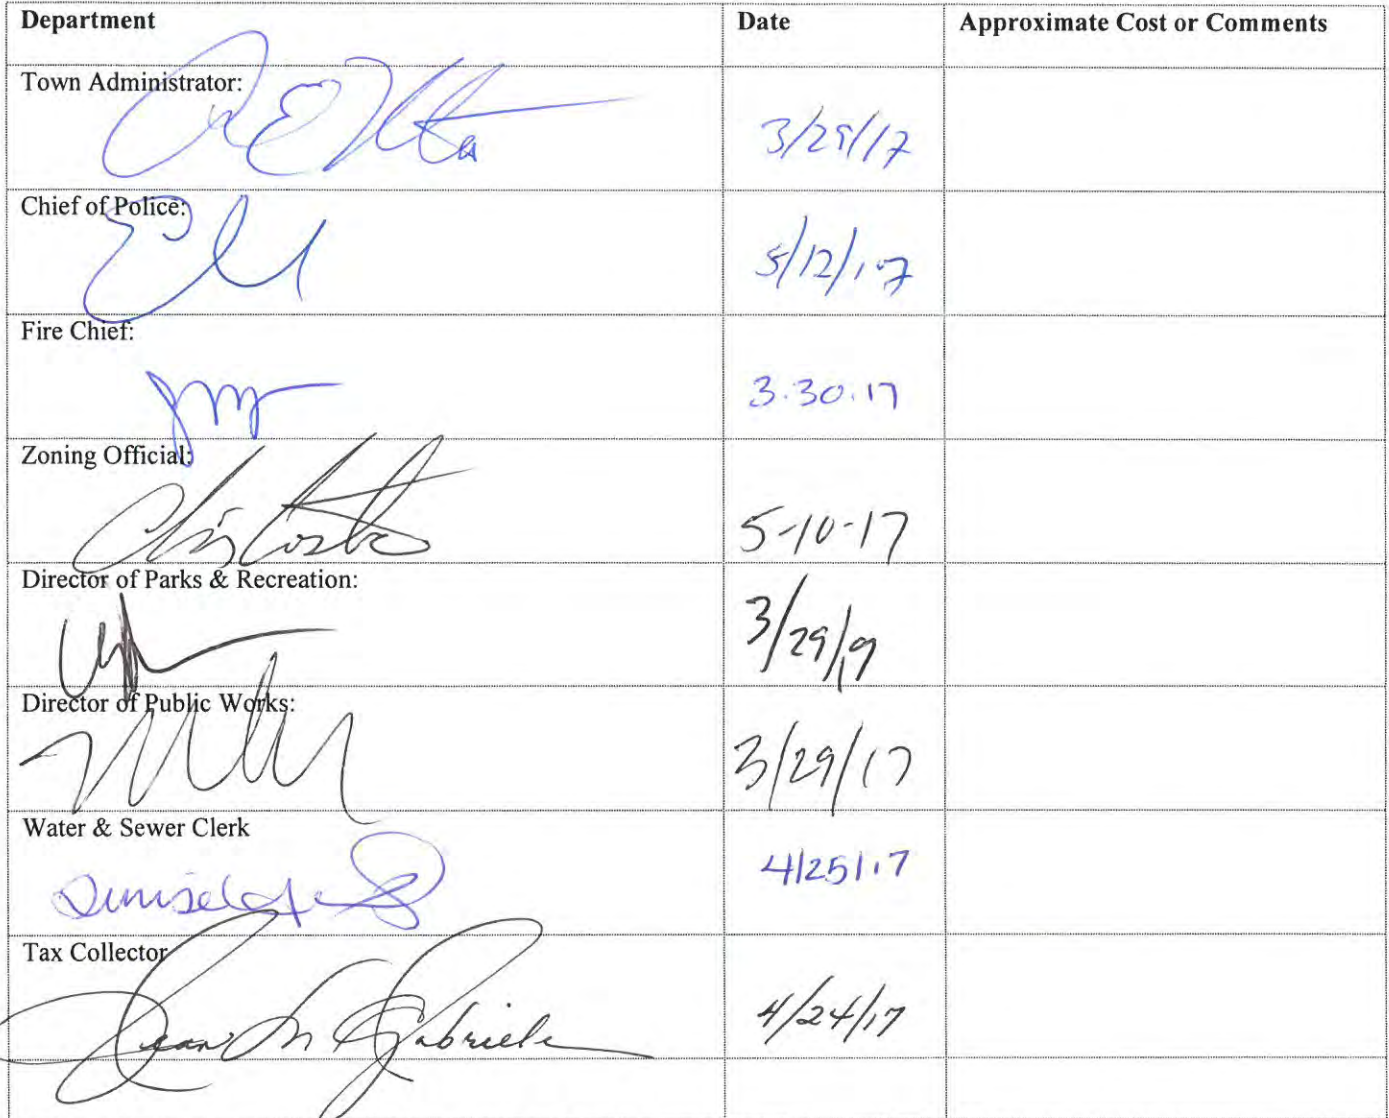 Department Date Approximate Cost or Comments
Town Administrator:
3/29/17
Chief of Police:
5/12/17
Fire Chief:
3.30.17
Zoning Official:
Chris Costa 5-10-17
Director of Parks & Recreation:
3/29/19
Director of Public Works:
3/29/17
Water & Sewer Clerk
4/25/17
Tax Collector
Jean M Gabriele 4/24/17